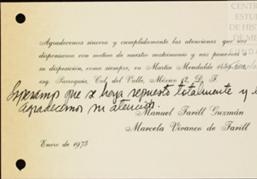 CENTRO
ESTUD
DE HIS
DE MÉ
Agradecemos sincera y cumplidamente las atenciones que nos
dispensaron con motivo de nuestro matrimonio y nos ponemos a
su disposición, como siempre, en Martín Mendalde
esq. Parroquia, Col. del Valle, México 12, D. F.
Esperamos que se haya repuesto totalmente y
agradecemos su atención.
Manuel Farill Guzmán
Marcela Vivanco de Farill
Enero de 1973